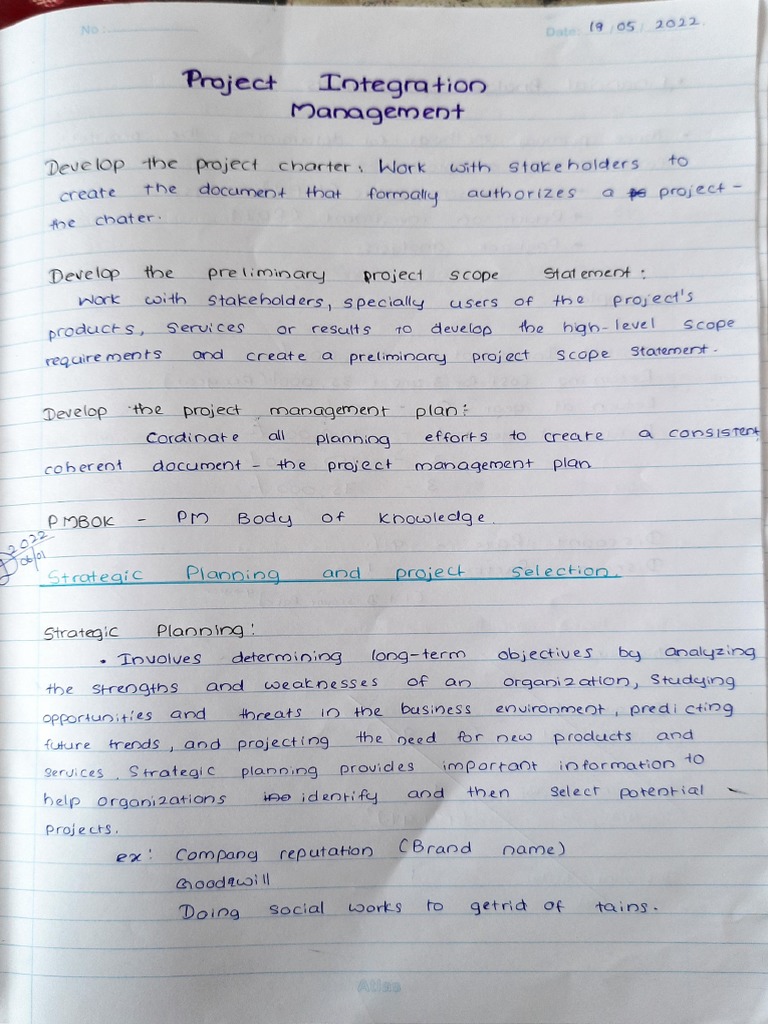 No:
Date: 19/05/2022
Project Integration
Management
Develop the project charter: Work with stakeholders to
create the document that formally authorizes a project-
the chater.
Develop the preliminary project scope Statement:
Work with stakeholders, specially users of the project's
products, services or results to develop the high-level scope
requirements and create a preliminary project scope statement.
Develop the project management plan:
Cordinate all planning efforts to create a consistent
coherent document - the project management plan
PMBOK - PM Body of Knowledge.
2022
06/01
Strategic Planning and project selection.
Strategic Planning:
• Involves determining long-term objectives by analyzing
the strengths and weaknesses of an organization, studying
opportunities and threats in the business environment, predicting
future trends, and projecting the need for new products and
services. Strategic planning provides important information to
help organizations identify and then select potential
projects.
ex: Compang reputation (Brand name)
Goodwill
Doing social works to getrid of tains.
Atlas